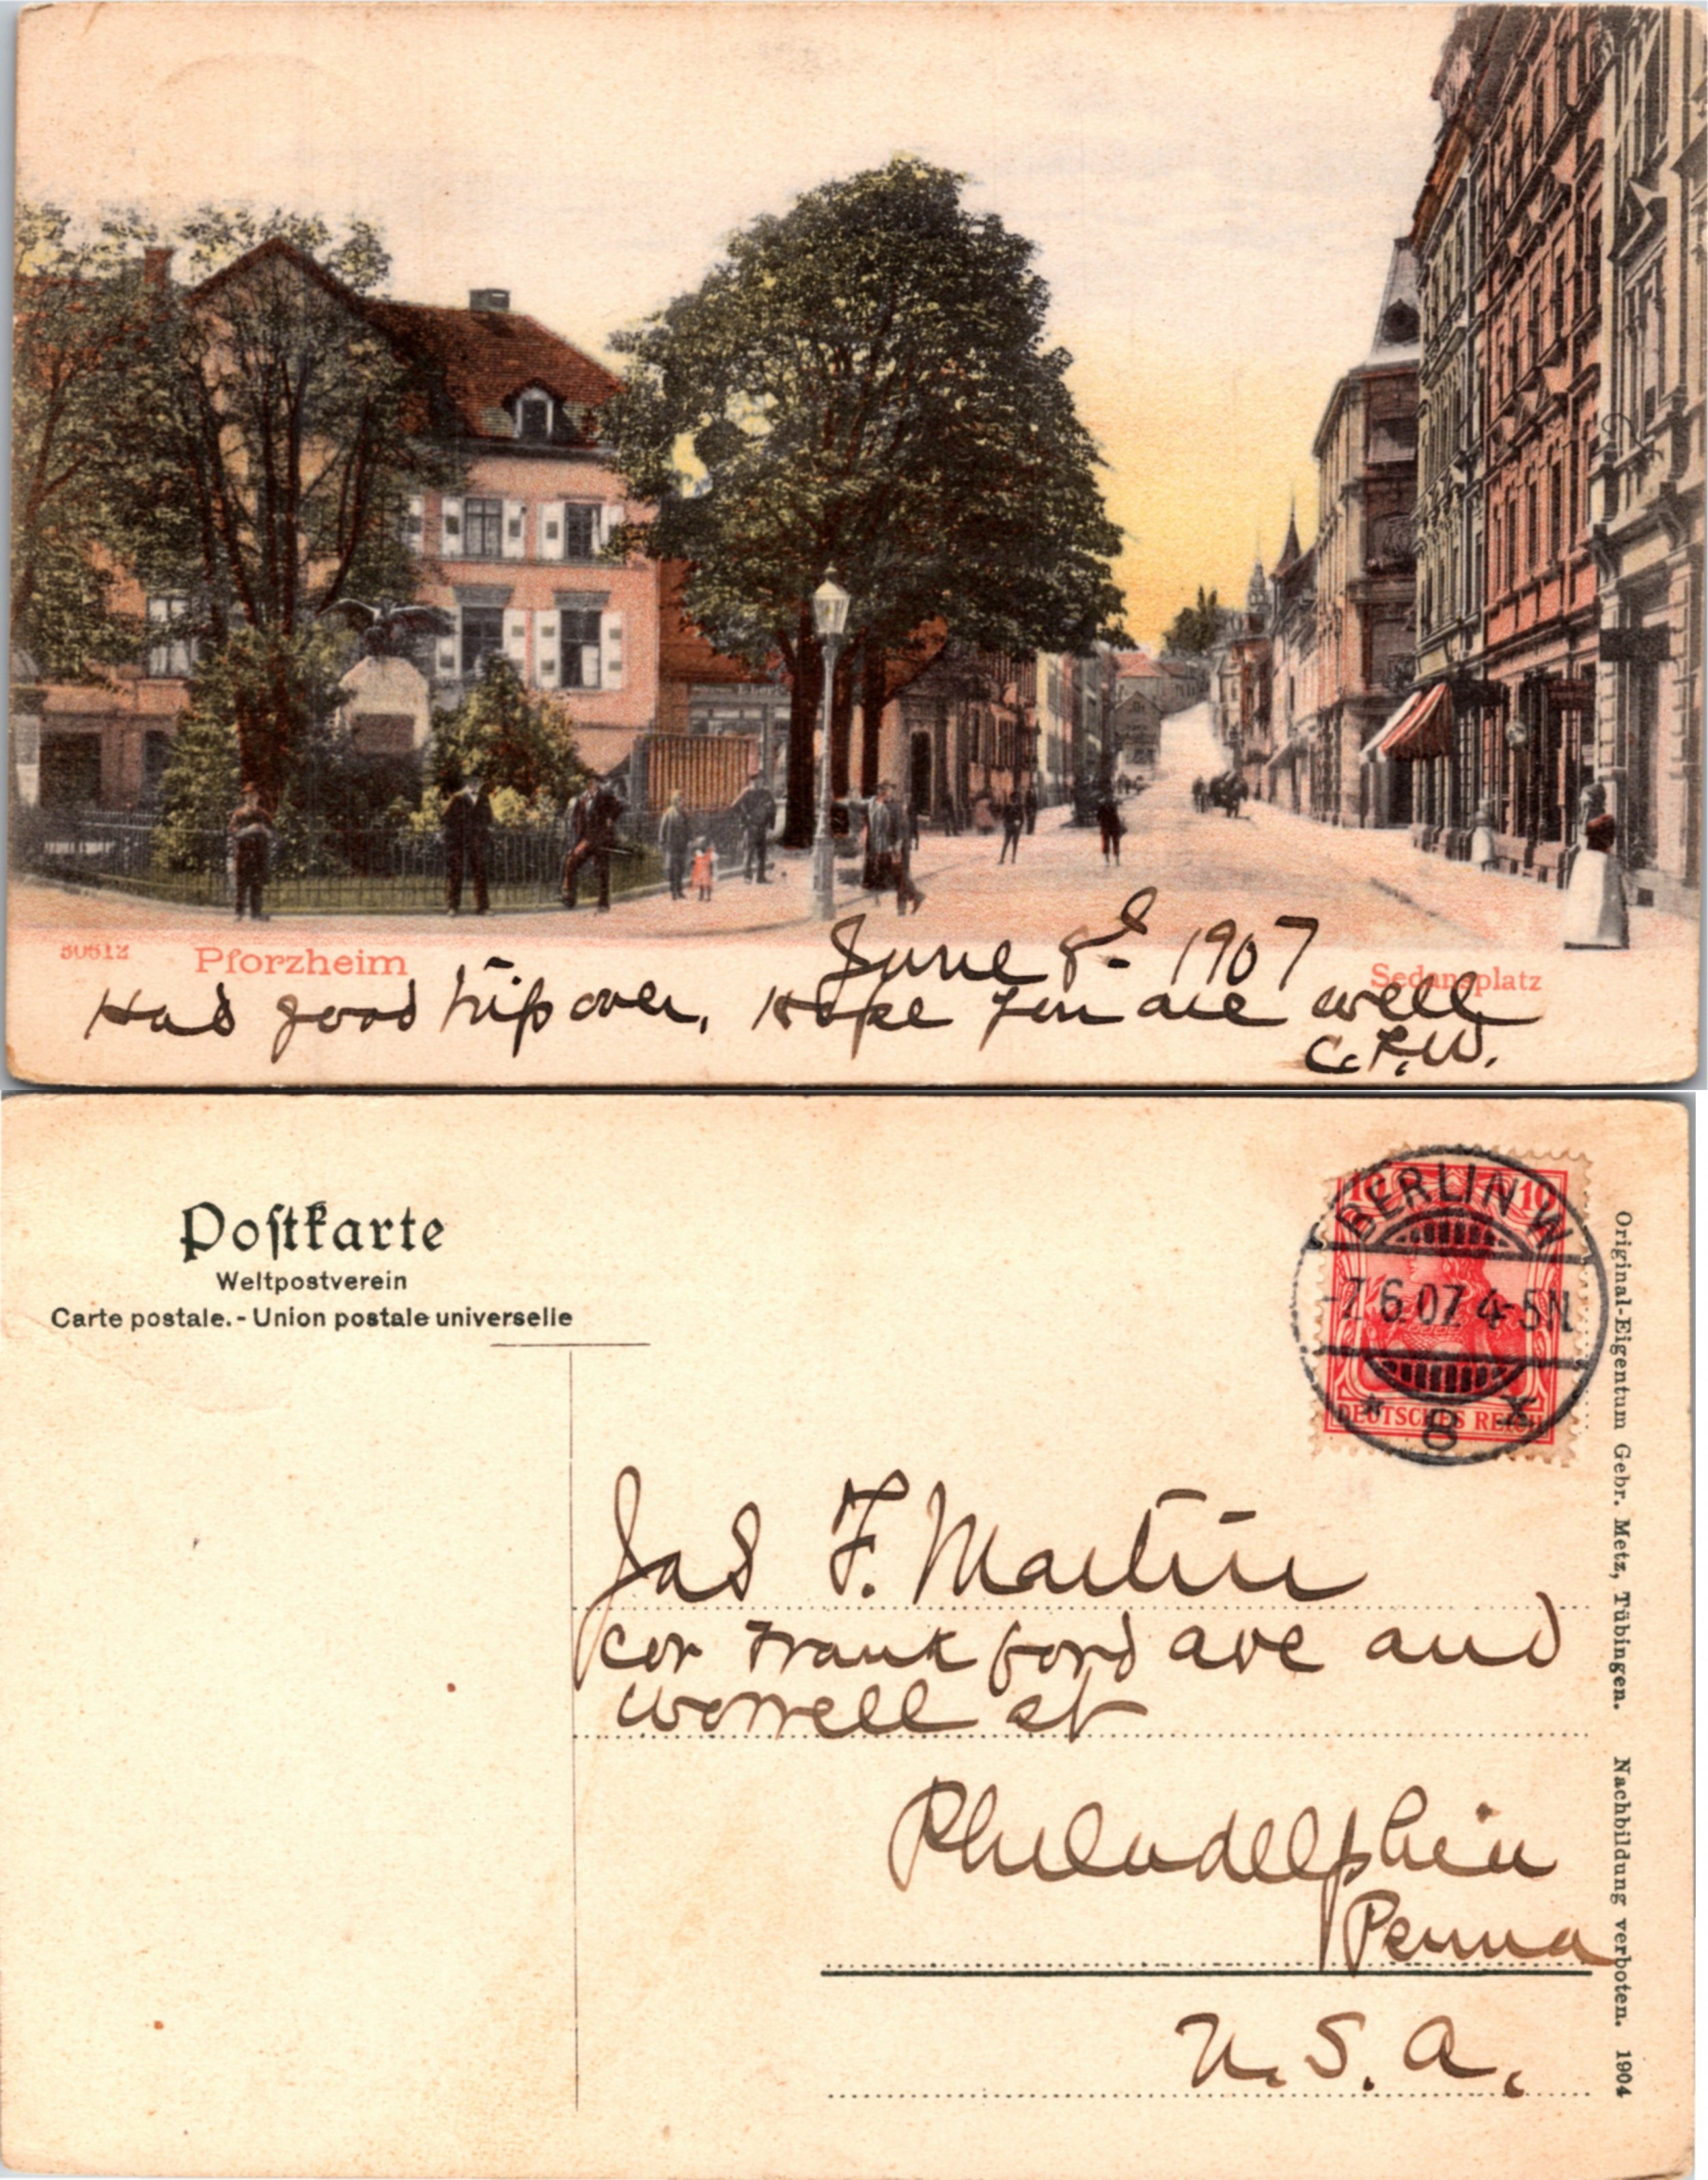 50612 Pforzheim
Sedansplatz
June 8d 1907
Had good trip over. Hope you are well
C.P.W.
Poſtkarte
Weltpostverein
Carte postale. - Union postale universelle
BERLIN W
-7.6.07.4-5N
* 8 *
10 10
DEUTSCHES REICH
Jas F. Martin
cor Frankford ave and
Worrell st
Philadelphia
Penna
U.S.A.
Original-Eigentum Gebr. Metz, Tübingen. Nachbildung verboten. 1904